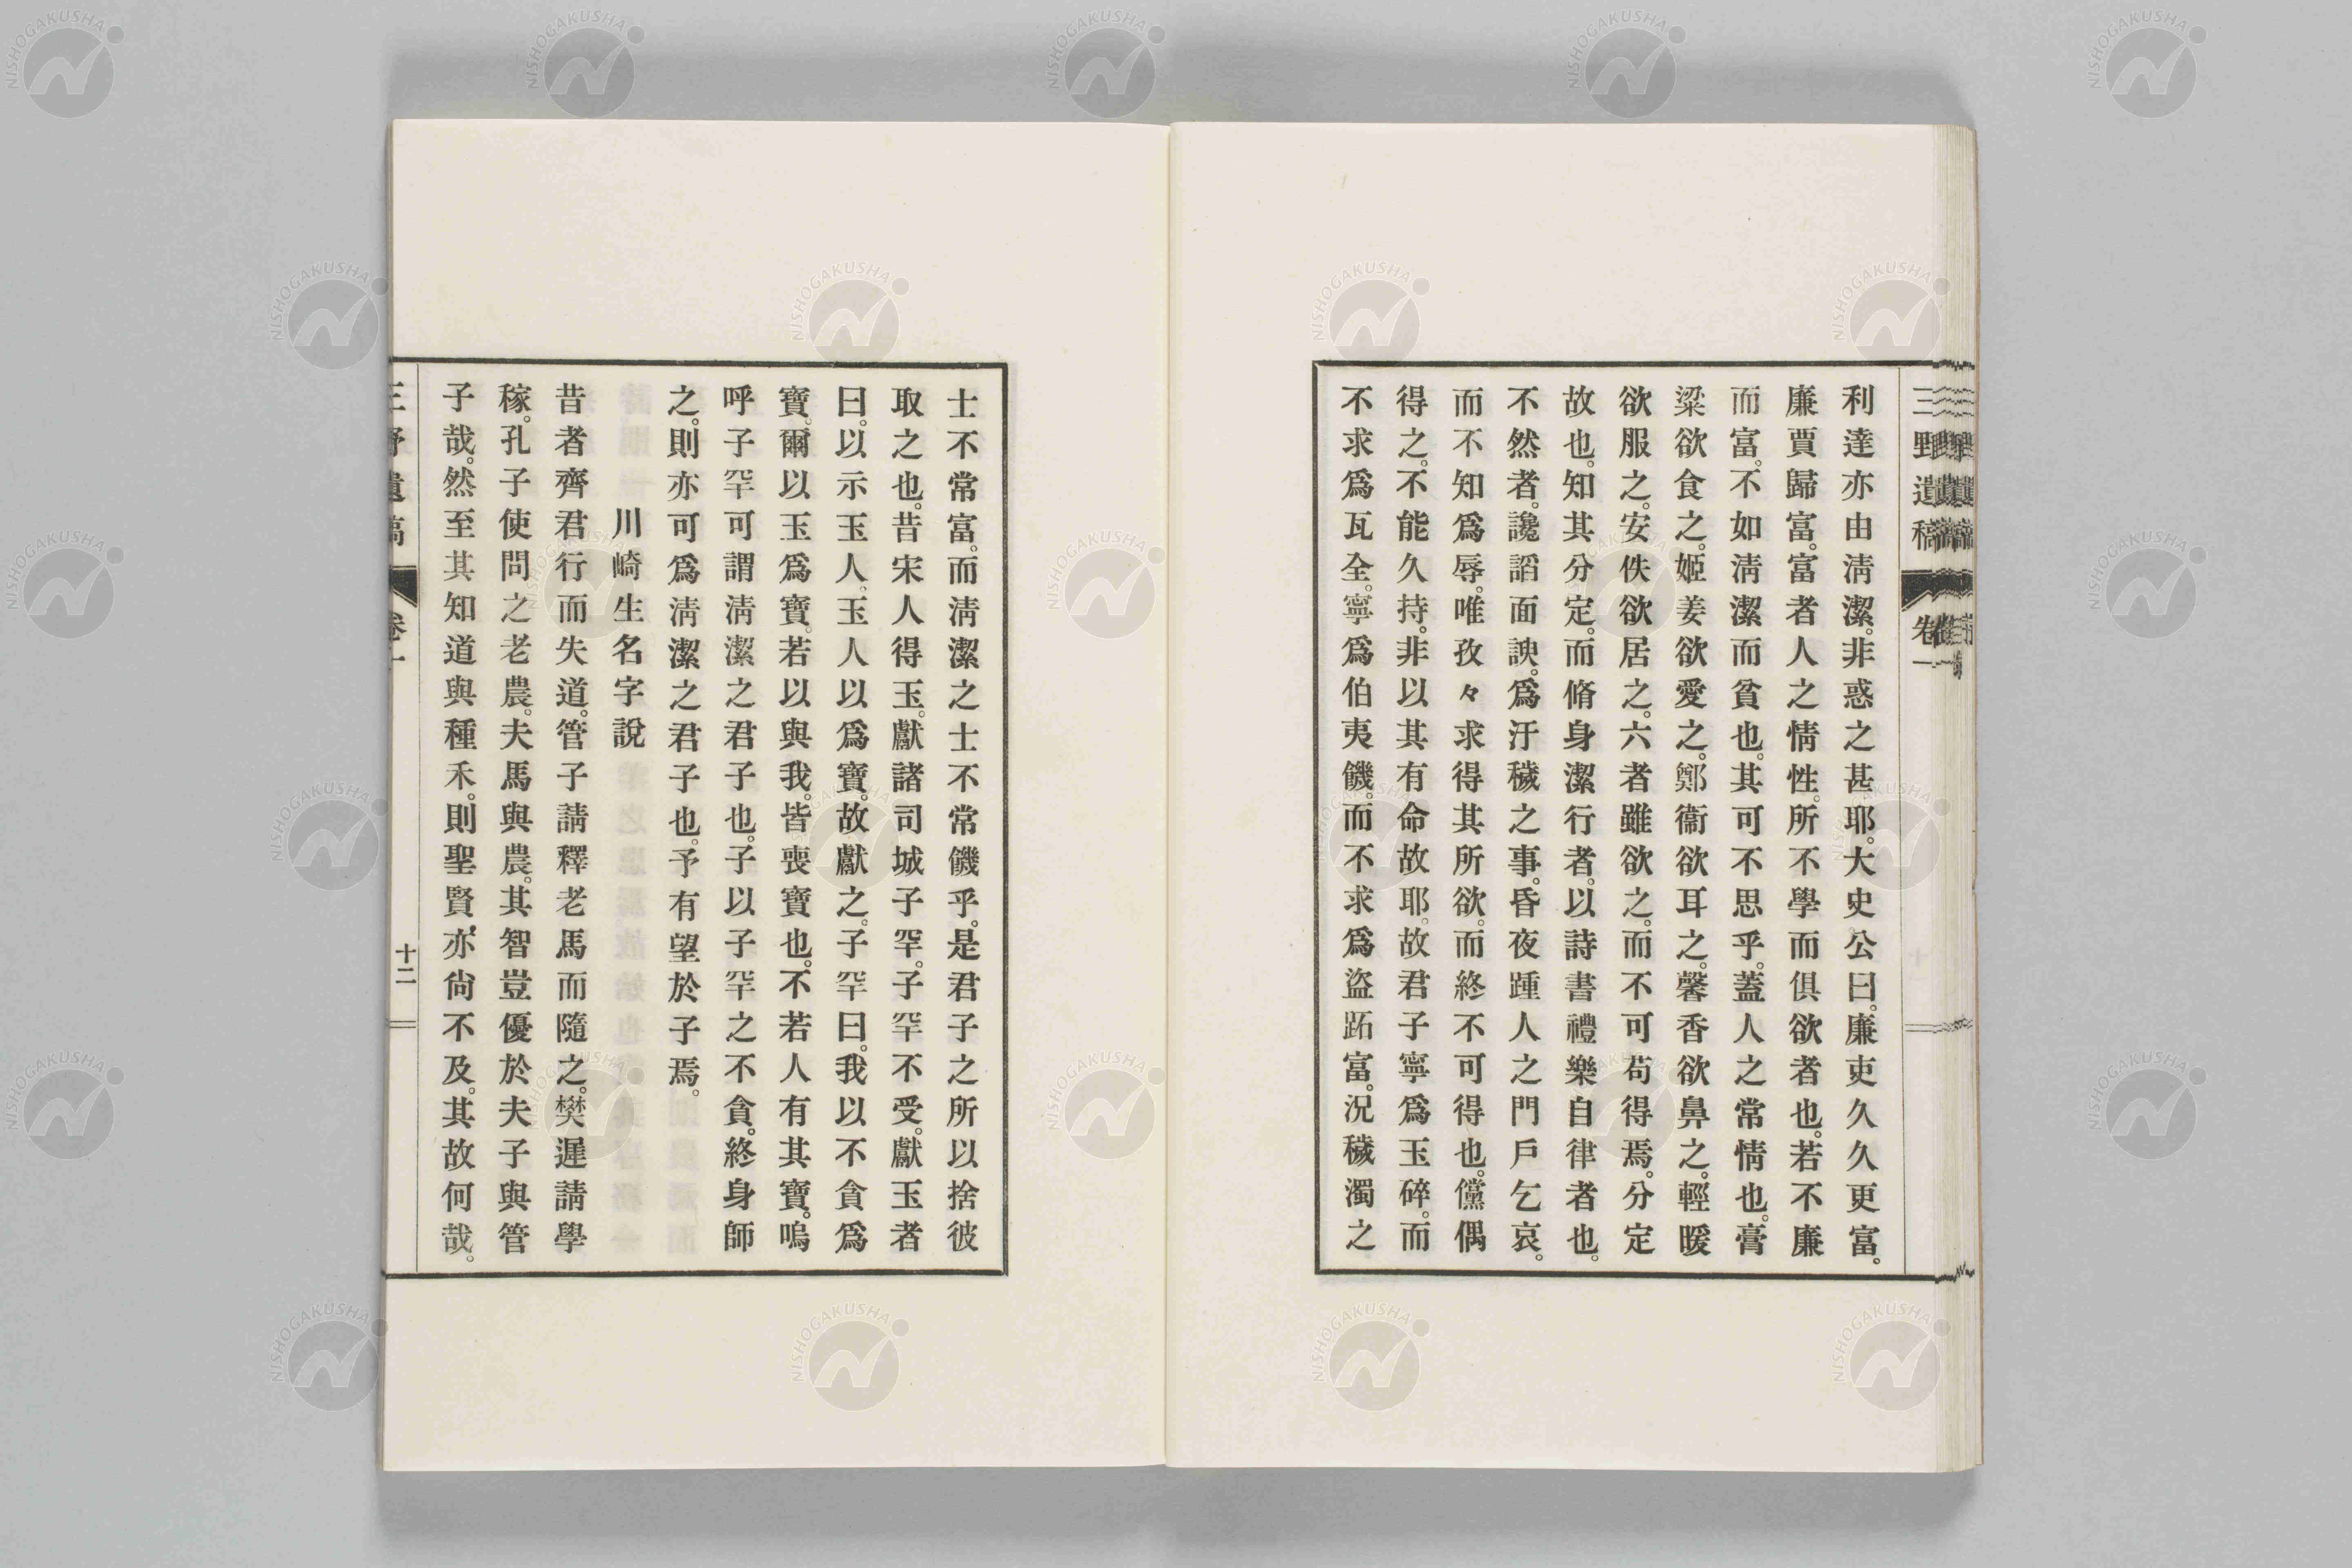 三野遺稿 卷一
利達亦由淸潔。非惑之甚耶。大史公曰。廉吏久久更富。
廉賈歸富。富者人之情性。所不學而俱欲者也。若不廉
而富。不如淸潔而貧也。其可不思乎。蓋人之常情也。膏
粱欲食之。姬姜欲愛之。鄭衞欲耳之。馨香欲鼻之。輕暖
欲服之。安佚欲居之。六者雖欲之。而不可苟得焉。分定
故也。知其分定。而脩身潔行者。以詩書禮樂自律者也。
不然者。讒謟面諛。爲汙穢之事。昏夜踵人之門戶乞哀。
而不知爲辱。唯孜々求得其所欲。而終不可得也。儻偶
得之。不能久持。非以其有命故耶。故君子寧爲玉碎。而
不求爲瓦全。寧爲伯夷饑。而不求爲盜跖富。況穢濁之
士不常富。而淸潔之士不常饑乎。是君子之所以捨彼
取之也。昔宋人得玉。獻諸司城子罕。子罕不受。獻玉者
曰。以示玉人。玉人以爲寶。故獻之。子罕曰。我以不貪爲
寶。爾以玉爲寶。若以與我。皆喪寶也。不若人有其寶。嗚
呼子罕可謂淸潔之君子也。子以子罕之不貪。終身師
之。則亦可爲淸潔之君子也。予有望於子焉。
川崎生名字說
昔者齊君行而失道。管子請釋老馬而隨之。樊遲請學
稼。孔子使問之老農。夫馬與農。其智豈優於夫子與管
子哉。然至其知道與種禾。則聖賢亦尙不及。其故何哉。
三野遺稿 卷一 十二
NISHOGAKUSHA